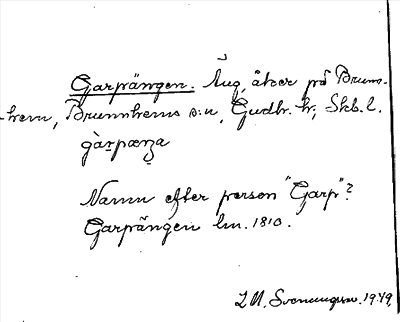 Garpängen. Äng, åker på Brunn-
hem, Brunnhems s:n, Gudh. hr, Skb. l.
gàrpænza
Namn efter person "Garp"?
Garpängen lm. 1810.
I. M. Svenungsson. 1949.